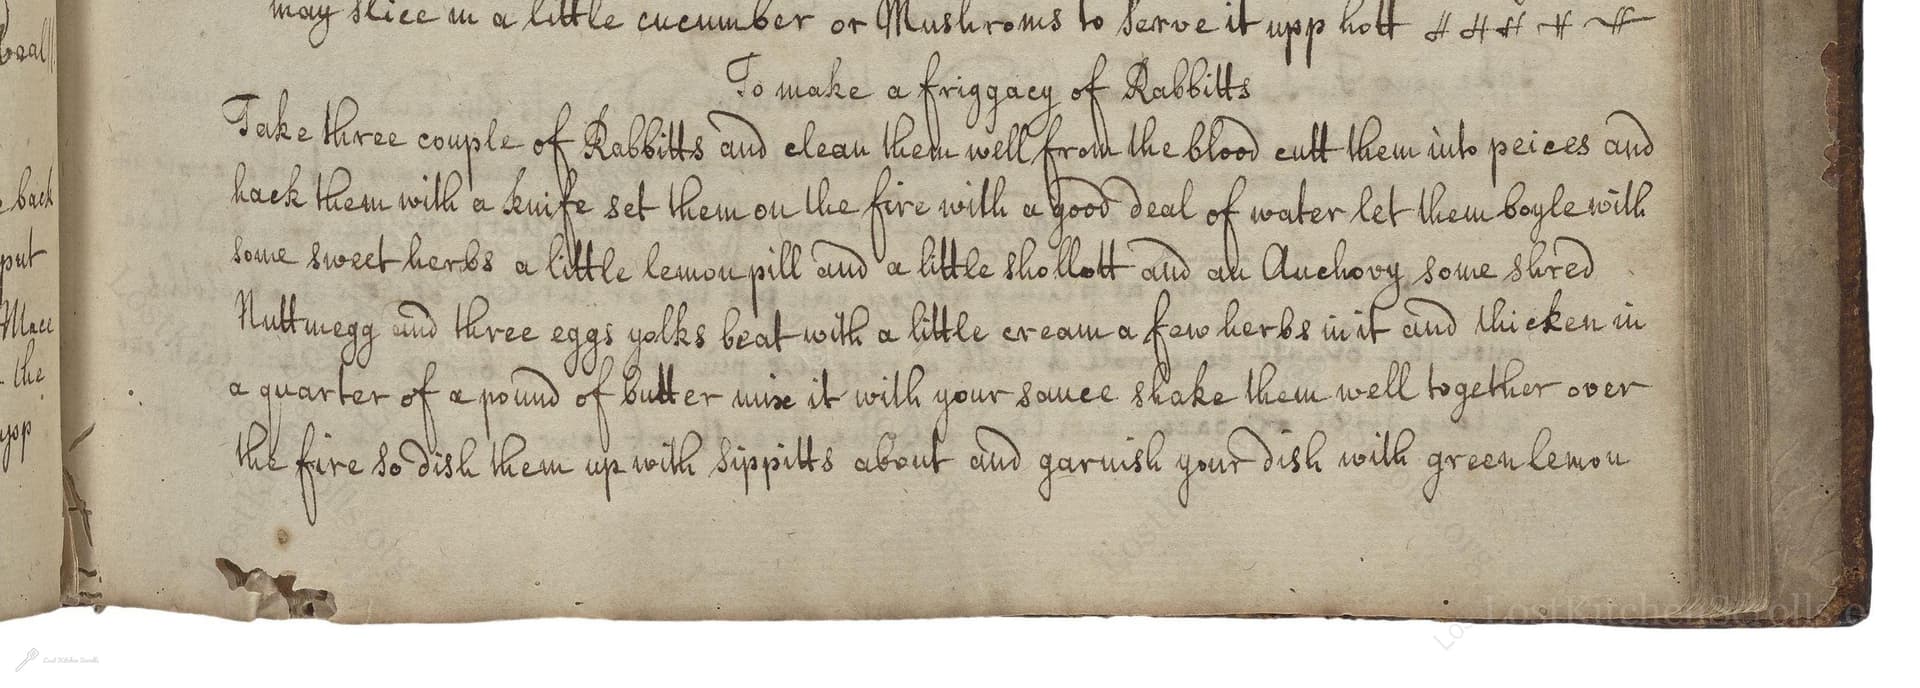 may slice in a little cucumber or Mushroms to serve it upp hott
To make a friggacy of Rabbitts
Take three couple of Rabbitts and clean them well from the blood cutt them into peices and
hack them with a knife set them on the fire with a good deal of water let them boyle with
some sweet herbs a little lemon pill and a little shollott and an Anchovy some shred
Nuttmegg and three eggs yolks beat with a little cream a few herbs in it and thicken in
a quarter of a pound of butter mix it with your sauce shake them well together over
the fire so dish them up with sippitts about and garnish your dish with green lemon
back
put
Mace
the
LostKitchenScrolls.o
Lost Kitchen Scrolls